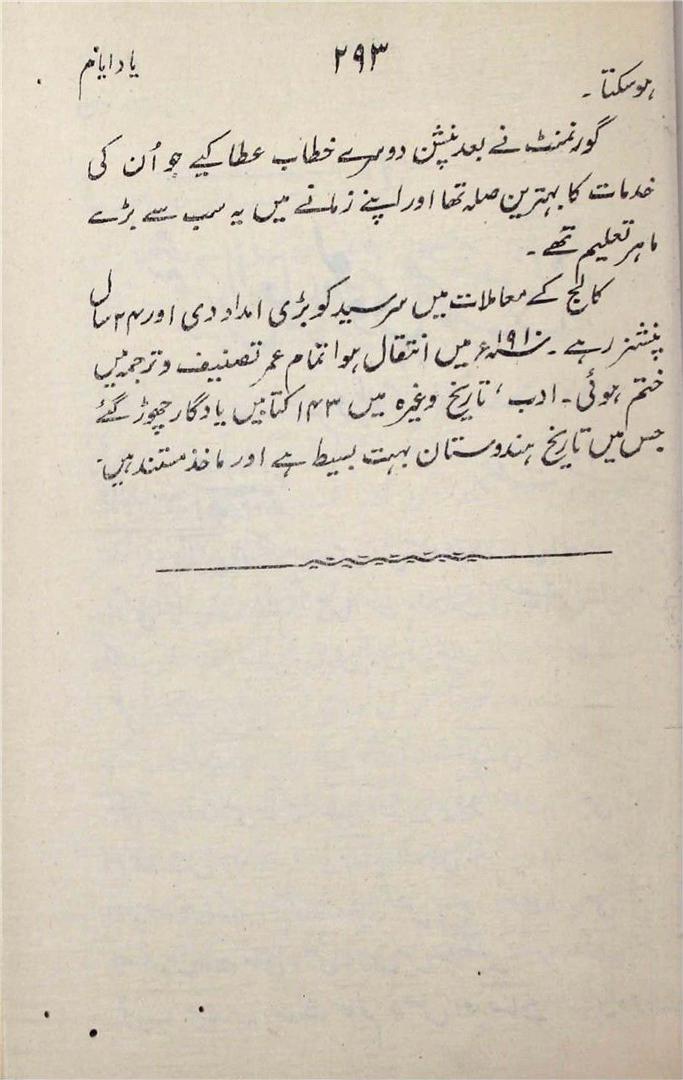 یادایام ۲۹۳
ہوسکتا۔
گورنمنٹ نے بعد پنشن دوسرے خطاب عطا کیے جو اُن کی
خدمات کا بہترین صلہ تھا اور اپنے زمانے میں یہ سب سے بڑے
ماہر تعلیم تھے۔
کالج کے معاملات میں سرسید کو بڑی امداد دی اور ۲۴ سال
پنشنر رہے۔ ۱۹۱۰ء میں انتقال ہوا تمام عمر تصنیف و ترجمہ میں
ختم ہوئی۔ ادب، تاریخ وغیرہ میں ۱۴۳ کتابیں یادگار چھوڑ گئے
جس میں تاریخ ہندوستان بہت بسیط ہے اور ماخذ مستند ہیں۔